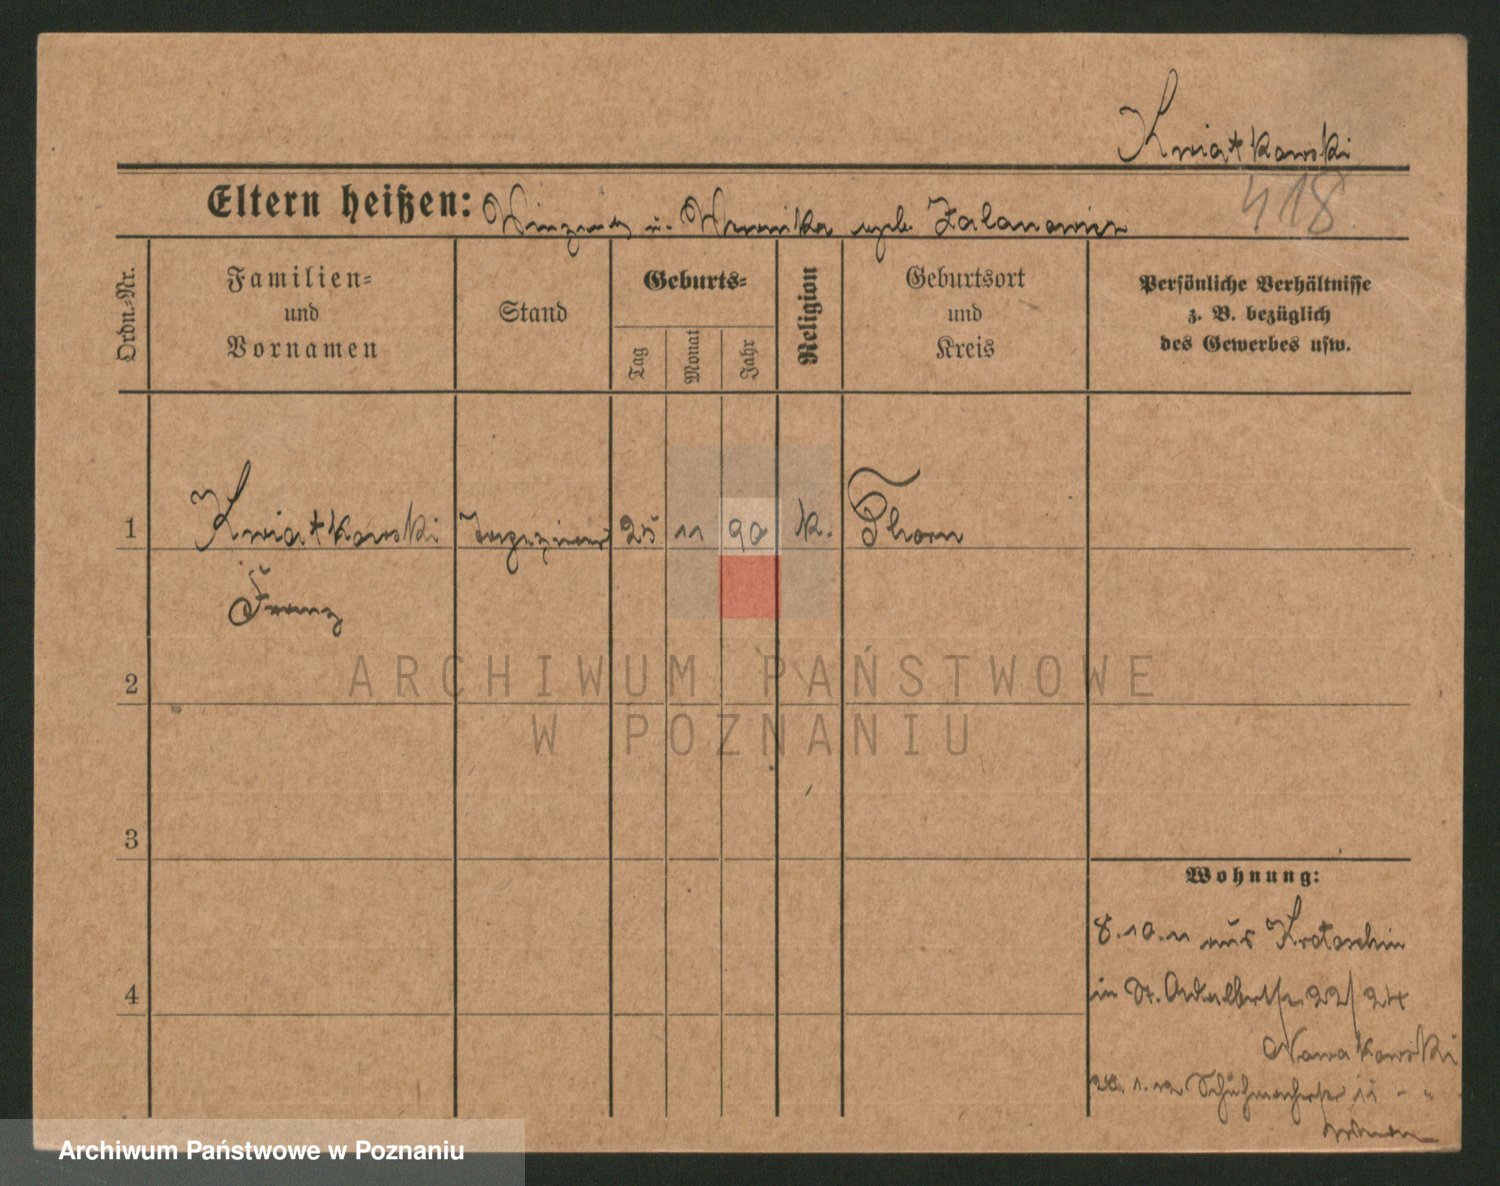 Kwiatkowski
418
Eltern heißen: Vinzent u. Veronika geb.
Ordn.-Nr.
Familien-
und
Vornamen
Stand
Geburts-
Tag
Monat
Jahr
Religion
Geburtsort
und
Kreis
Persönliche Verhältnisse
z. B. bezüglich
des Gewerbes usw.
1 Kwiatkowski 25 11 90 k. Thorn
Franz
ARCHIWUM PAŃSTWOWE
2
W POZNANIU
3
Wohnung:
8.10.11 aus Krotoschin
4
in St. Adalbertstr. 22/24
Nowakowski
28.1.12 Schuhmacherstr. 11
Archiwum Państwowe w Poznaniu